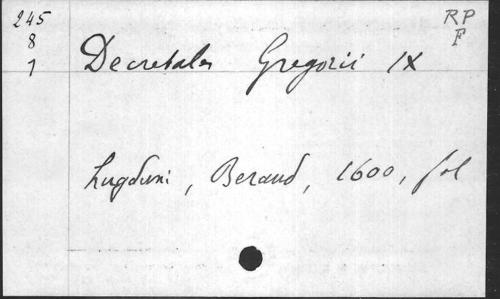 245
8
1
RP
F
Decretales Gregorii IX
Lugduni, Beraud, 1600, fol